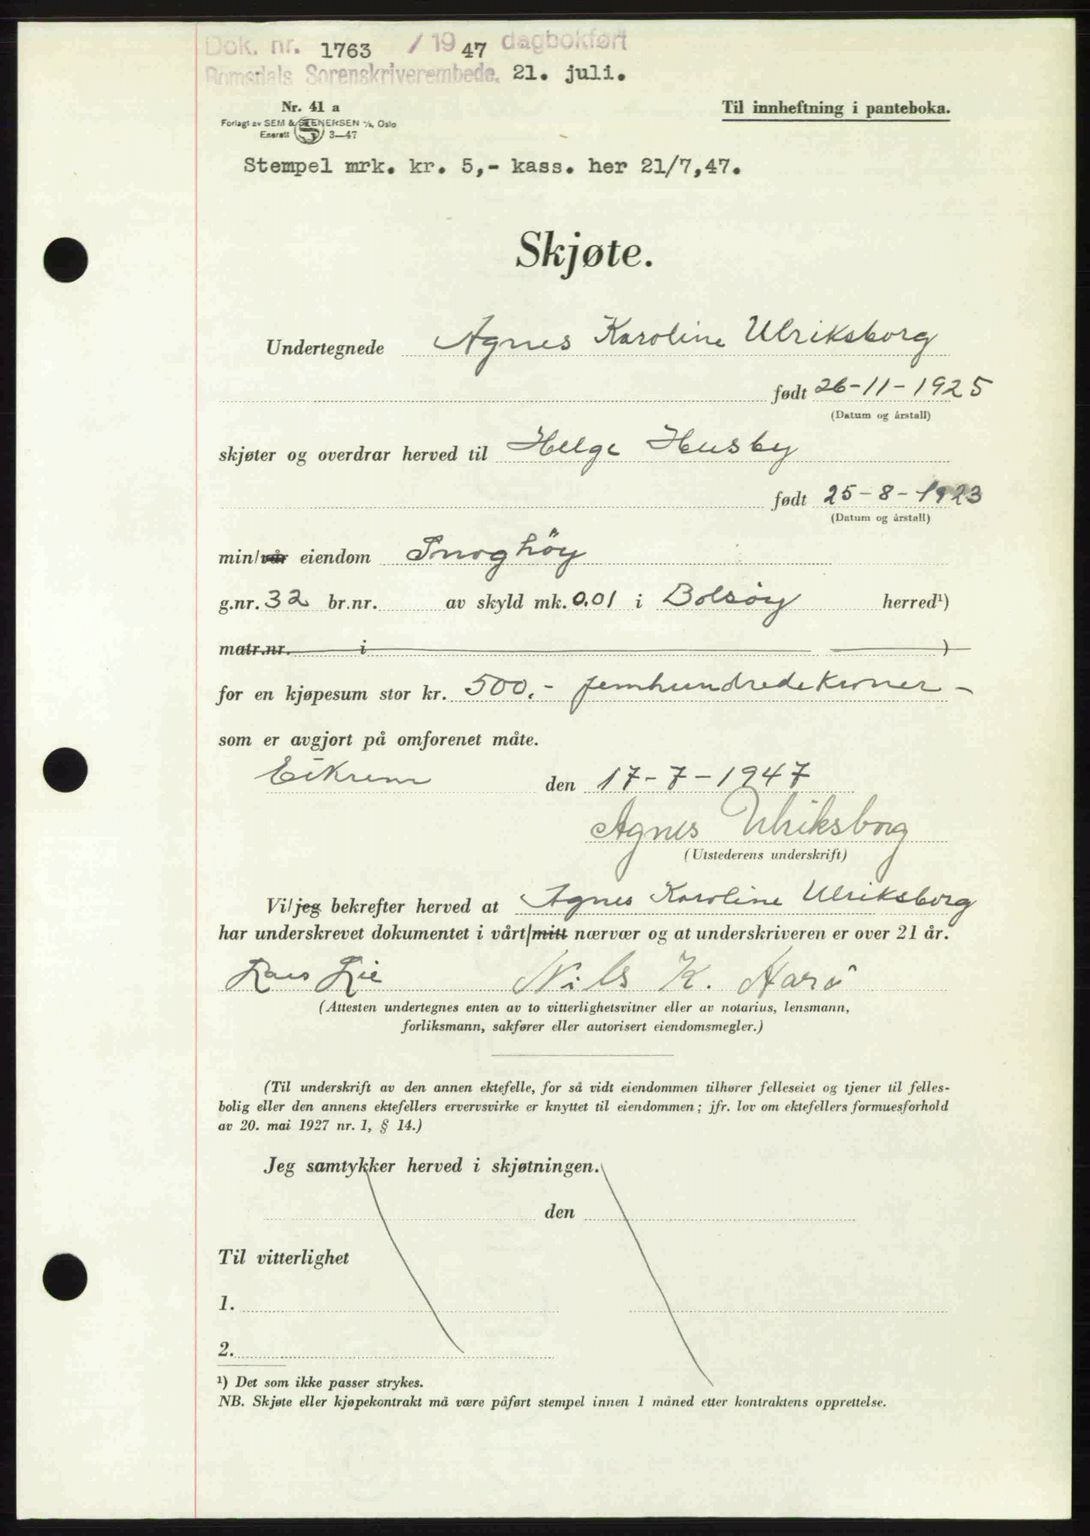 Dok. nr. 1763 / 19 47 dagbokført
Romsdals Sorenskriverembede. 21. juli.
Nr. 41 a
Til innheftning i panteboka.
Forlagt av SEM & STENERSEN A/S, Oslo
Enerett S 3—47
Stempel mrk. kr. 5,- kass. her 21/7,47.
Skjøte.
Undertegnede Agnes Karoline Ulriksborg
født 26-11-1925
(Datum og årstall)
skjøter og overdrar herved til Helge Husby
født 25-8-1923
(Datum og årstall)
min/vår eiendom Snoghöy
g.nr. 32 br.nr. av skyld mk. 0.01 i Bolsöy herred¹)
matr.nr. i )
for en kjøpesum stor kr. 500.- femhundredekroner -
som er avgjort på omforenet måte.
Eikrem den 17-7-1947
Agnes Ulriksborg
(Utstederens underskrift)
Vi/jeg bekrefter herved at Agnes Karoline Ulriksborg
har underskrevet dokumentet i vårt/mitt nærvær og at underskriveren er over 21 år.
Lars Lie Nils K. Harö
(Attesten undertegnes enten av to vitterlighetsvitner eller av notarius, lensmann,
forliksmann, sakfører eller autorisert eiendomsmegler.)
(Til underskrift av den annen ektefelle, for så vidt eiendommen tilhører felleseiet og tjener til felles-
bolig eller den annens ektefellers ervervsvirke er knyttet til eiendommen; jfr. lov om ektefellers formuesforhold
av 20. mai 1927 nr. 1, § 14.)
Jeg samtykker herved i skjøtningen.
den
Til vitterlighet
1.
2.
¹) Det som ikke passer strykes.
NB. Skjøte eller kjøpekontrakt må være påført stempel innen 1 måned etter kontraktens opprettelse.